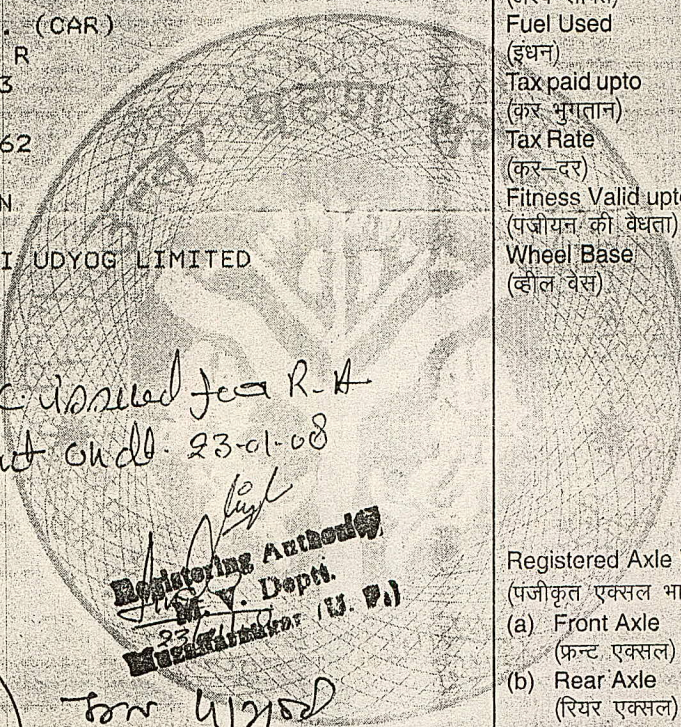 . (CAR)
R
3
62
N
I UDYOG LIMITED
issued for R-A
on dt. 23-01-08
Registering Authority
M. V. Deptt.
(U. P.)
उत्तर प्रदेश
Fuel Used
(इंधन)
Tax paid upto
(कर भुगतान)
Tax Rate
(कर-दर)
Fitness Valid upto
(पंजीयन की वैधता)
Wheel Base
(व्हील वेस)
Registered Axle
(पंजीकृत एक्सल भा
(a) Front Axle
(फ्रन्ट एक्सल)
(b) Rear Axle
(रियर एक्सल)